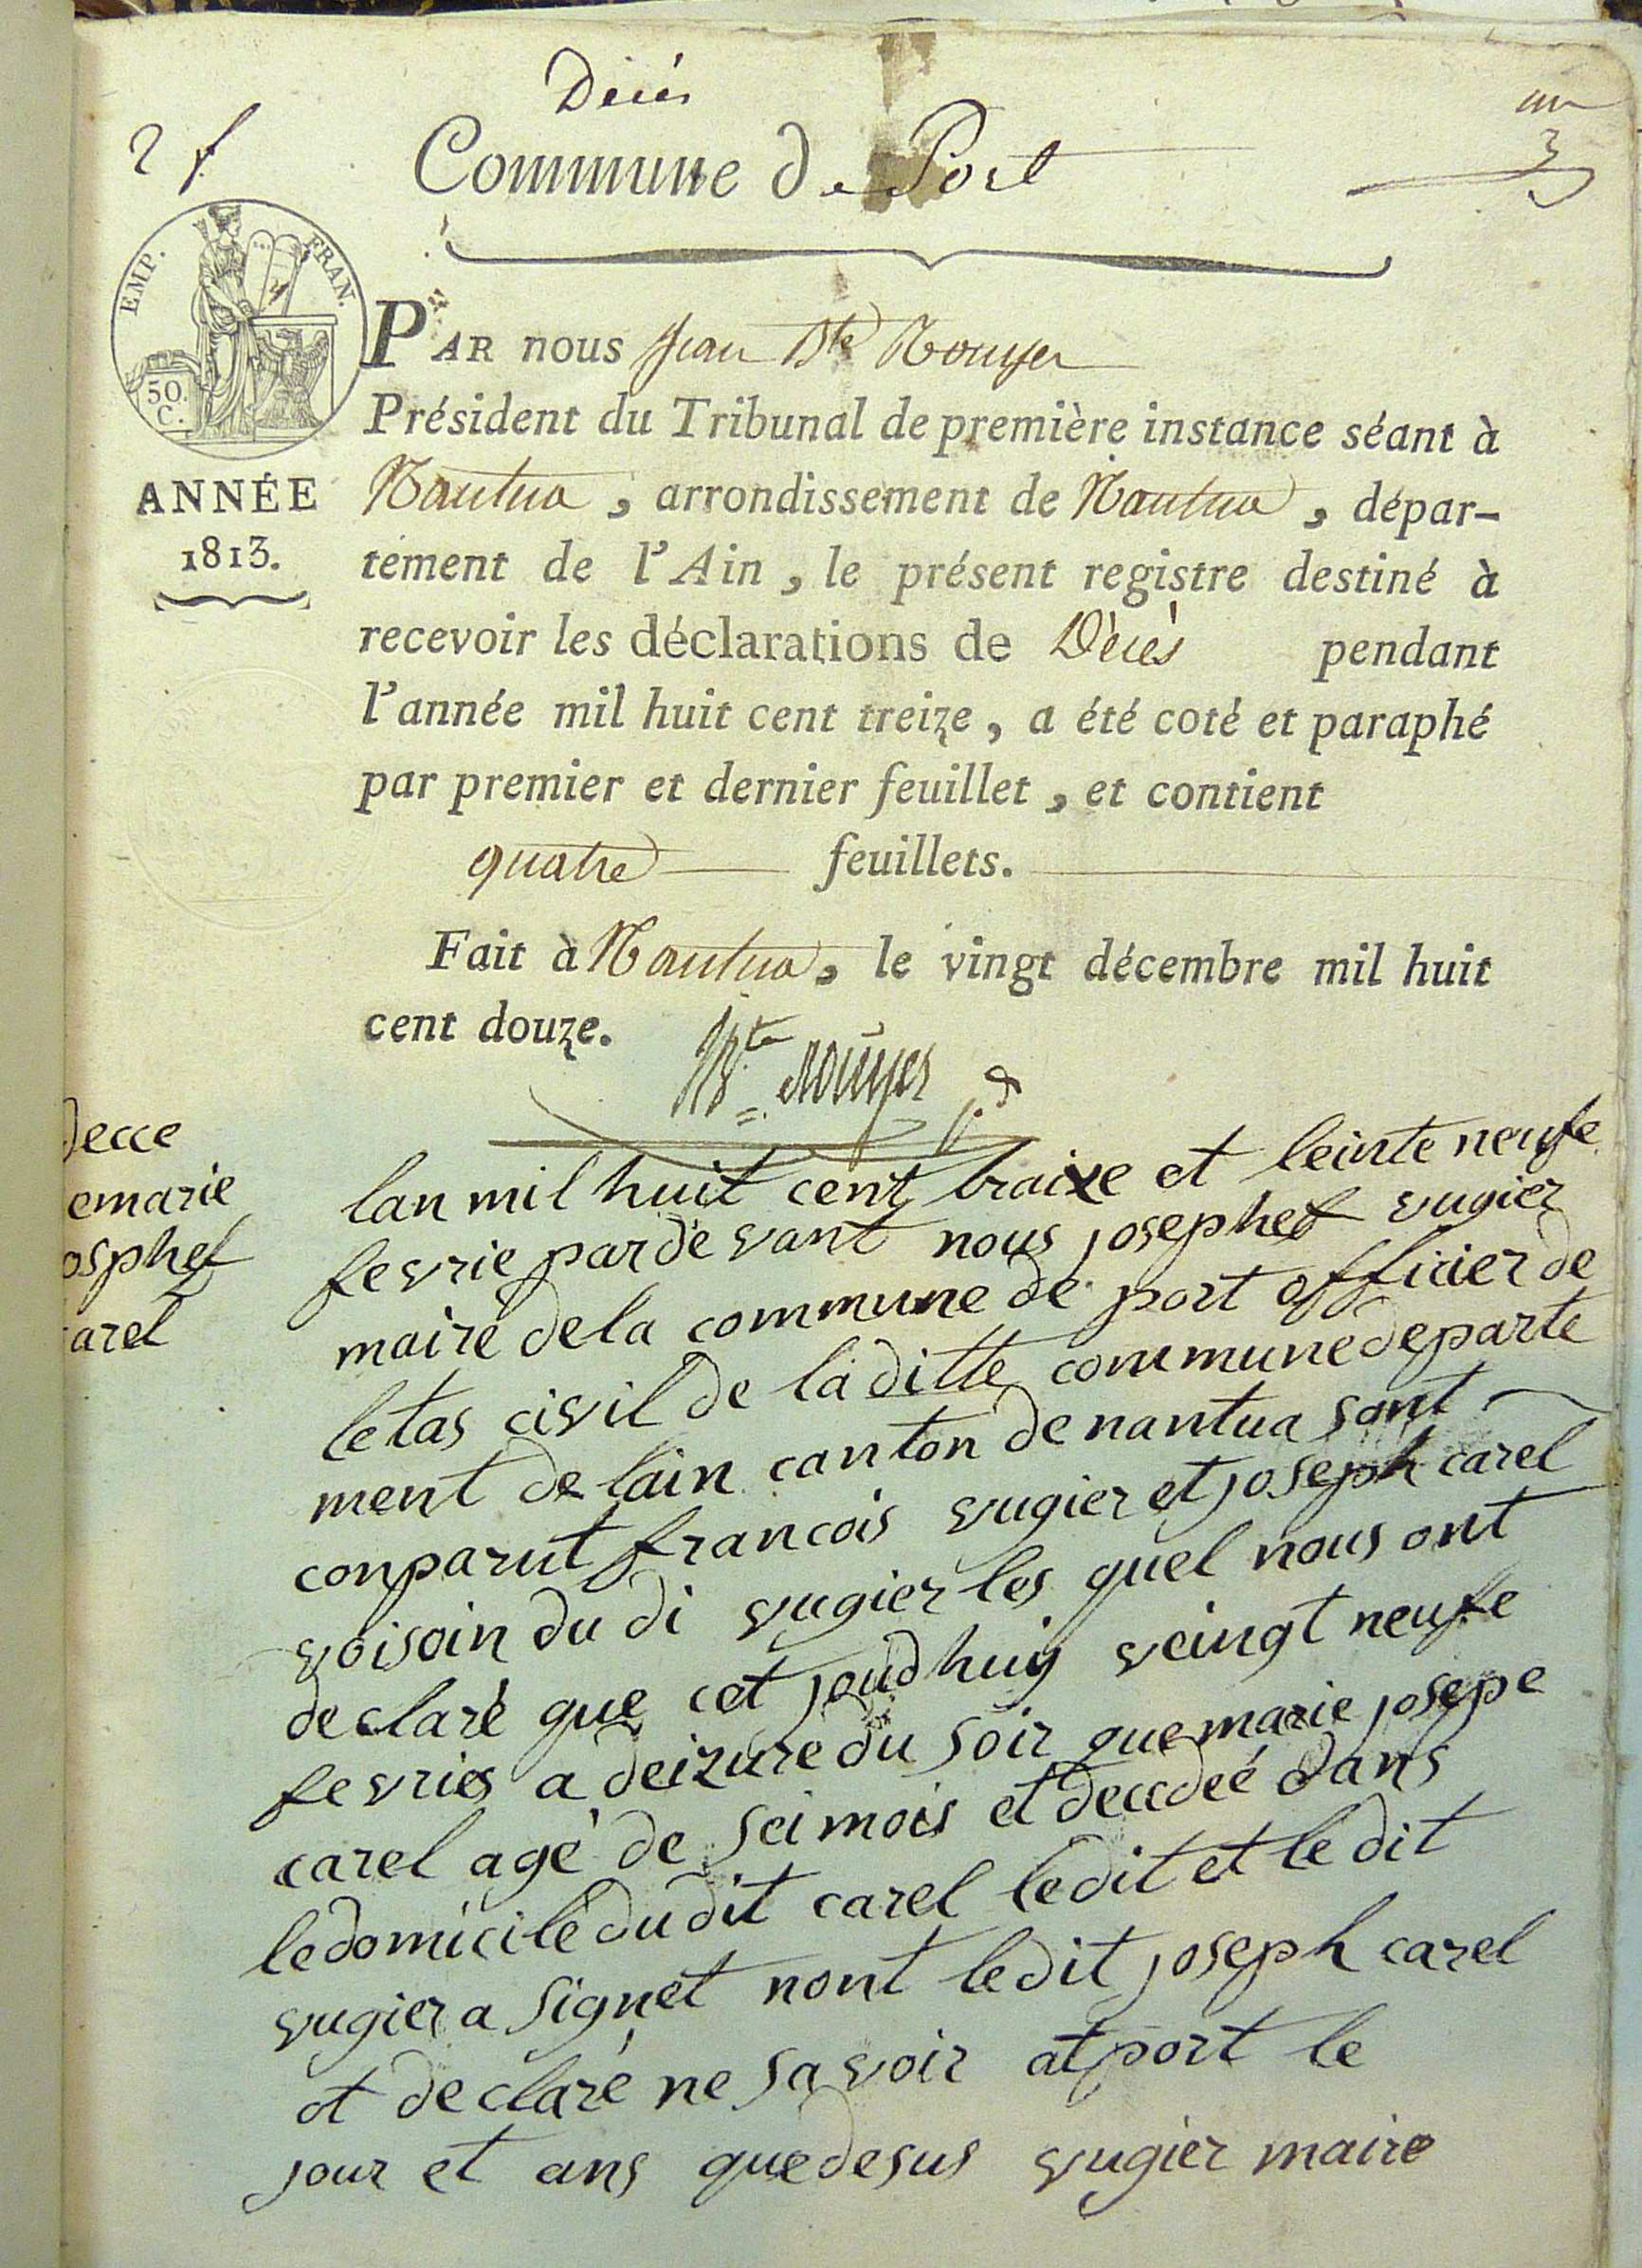 Décés
2 f
un
3
Commune de Port
EMP. FRAN.
50.
C.
ANNÉE
1813.
PAR nous Jean Bte Rouyer
Président du Tribunal de première instance séant à
Nantua, arrondissement de Nantua, dépar-
tement de l'Ain, le présent registre destiné à
recevoir les déclarations de Décés pendant
l'année mil huit cent treize, a été coté et paraphé
par premier et dernier feuillet, et contient
quatre feuillets.
Fait à Nantua, le vingt décembre mil huit
cent douze.
Bte Rouyer
decce
emarie
osphet
carel
lan mil huit cent traixe et leinte neufe
fevrie pardevant nous josephet vugier
maire dela commune de port officier de
letas civil de la ditte commune departe
ment de lain canton de nantua sont
conparut francois vugier et joseph carel
voisoin du di vugier les quel nous ont
declaré que cet joudhuy veingt neufe
fevries a deizure du soir que marie josepe
carel agé de sei mois et deccdeé dans
le domicile dudit carel ledit et le dit
vugier a signet nont ledit joseph carel
ot declaré ne savoir at port le
jour et ans que desus vugier maire